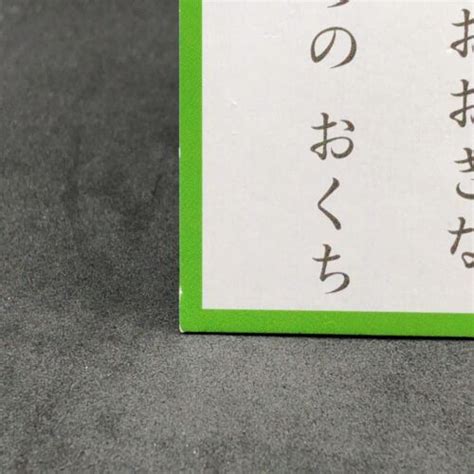 おおきな
の おくち